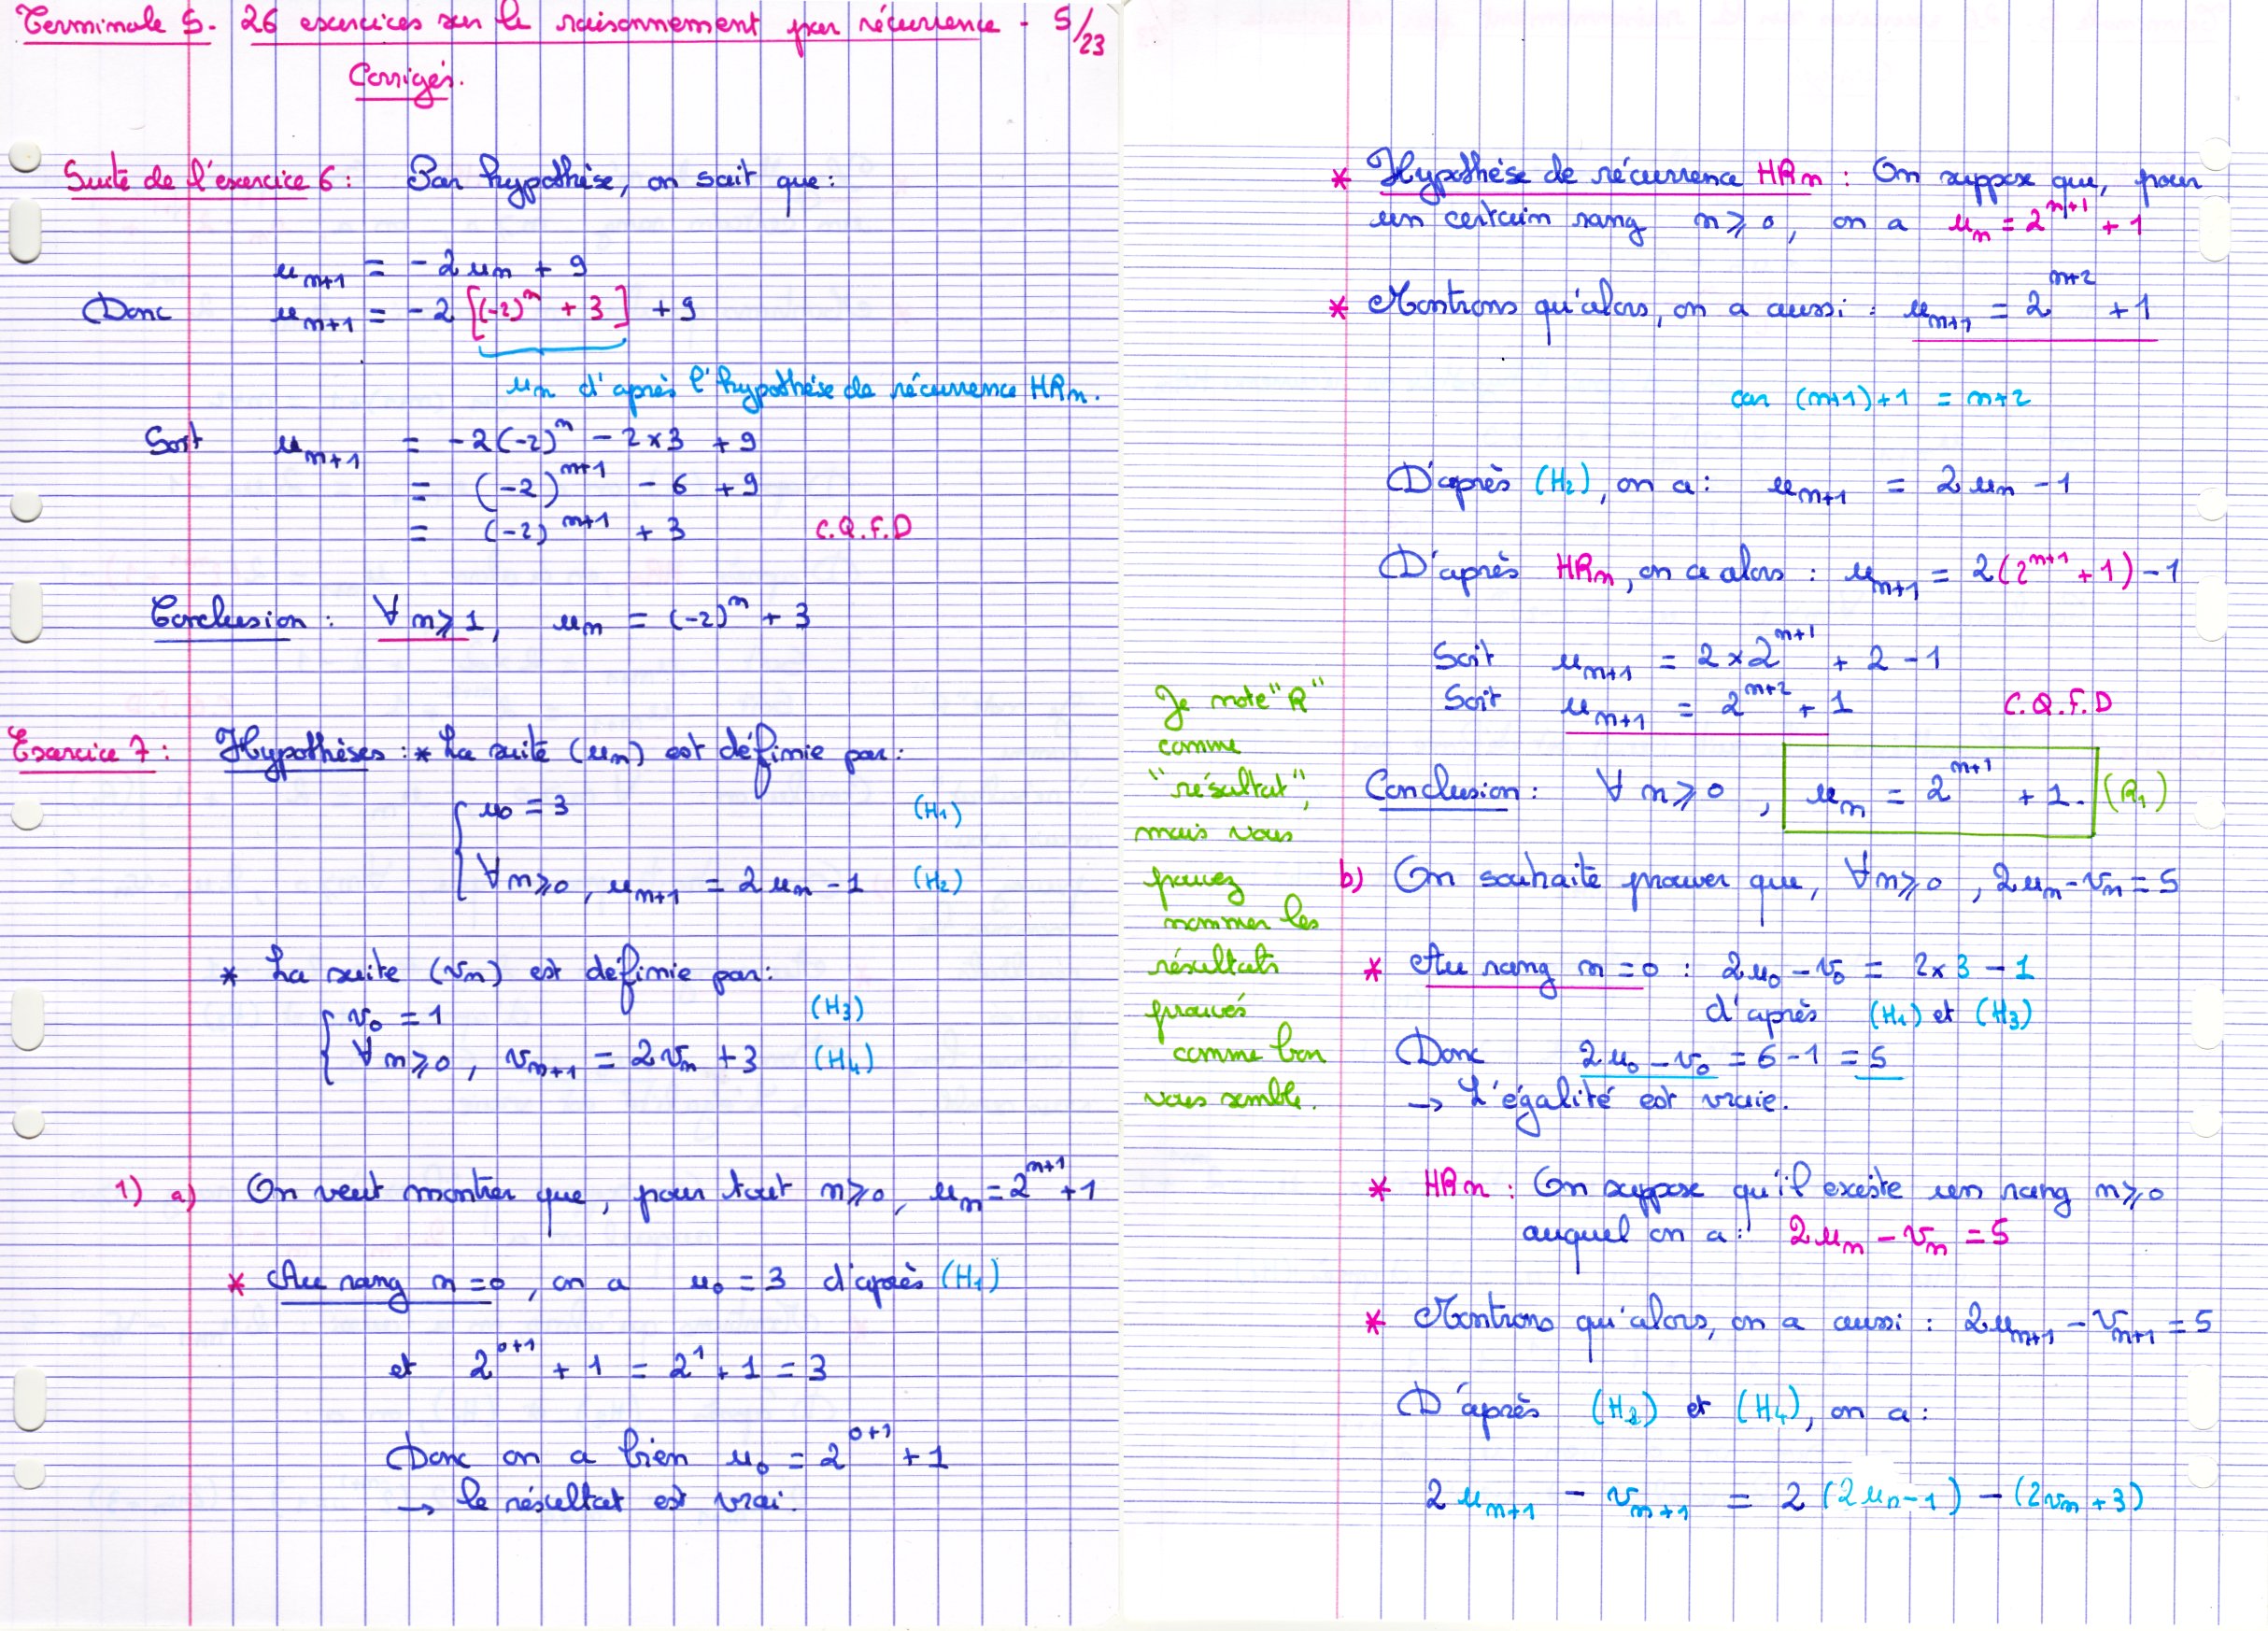 Terminale S. 26 exercices sur le raisonnement par récurrence - 5/23
Corrigés.
Suite de l'exercice 6 : Par hypothèse, on sait que :
u_{n+1} = -2u_n + 9
Donc u_{n+1} = -2 [(-2)^n + 3] + 9
u_n d'après l'hypothèse de récurrence HRn.
Soit u_{n+1} = -2(-2)^n - 2×3 + 9
= (-2)^{n+1} - 6 + 9
= (-2)^{n+1} + 3 C.Q.F.D
Conclusion : ∀ n ⩾ 1, u_n = (-2)^n + 3
Exercice 7 : Hypothèses : * La suite (u_n) est définie par :
u_0 = 3 (H1)
∀ n ⩾ 0, u_{n+1} = 2u_n - 1 (H2)
* La suite (v_n) est définie par :
v_0 = 1 (H3)
∀ n ⩾ 0, v_{n+1} = 2v_n + 3 (H4)
1) a) On veut montrer que, pour tout n ⩾ 0, u_n = 2^{n+1} + 1
* Au rang n = 0, on a u_0 = 3 d'après (H1)
et 2^{0+1} + 1 = 2^1 + 1 = 3
Donc on a bien u_0 = 2^{0+1} + 1
→ le résultat est vrai.
* Hypothèse de récurrence HRn : On suppose que, pour
un certain rang n ⩾ 0, on a u_n = 2^{n+1} + 1
* Montrons qu'alors, on a aussi : u_{n+1} = 2^{n+2} + 1
car (n+1)+1 = n+2
D'après (H2), on a : u_{n+1} = 2u_n - 1
D'après HRn, on a alors : u_{n+1} = 2(2^{n+1} + 1) - 1
Soit u_{n+1} = 2×2^{n+1} + 2 - 1
Soit u_{n+1} = 2^{n+2} + 1 C.Q.F.D
Conclusion : ∀ n ⩾ 0, u_n = 2^{n+1} + 1. (R1)
Je note "R"
comme
"résultat",
mais vous
pouvez
nommer les
résultats
prouvés
comme bon
vous semble.
b) On souhaite prouver que, ∀ n ⩾ 0, 2u_n - v_n = 5
* Au rang n = 0 : 2u_0 - v_0 = 2×3 - 1
d'après (H1) et (H3)
Donc 2u_0 - v_0 = 6 - 1 = 5
→ L'égalité est vraie.
* HRn : On suppose qu'il existe un rang n ⩾ 0
auquel on a : 2u_n - v_n = 5
* Montrons qu'alors, on a aussi : 2u_{n+1} - v_{n+1} = 5
D'après (H2) et (H4), on a :
2u_{n+1} - v_{n+1} = 2(2u_n - 1) - (2v_n + 3)